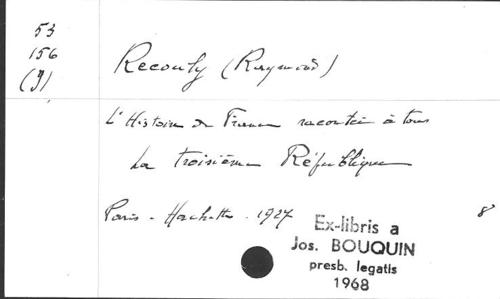 53
156
(9)
Recouly (Raymond)
L'Histoire de France racontée à tous
La troisième République
Paris - Hachette - 1927
8
Ex-libris a
Jos. BOUQUIN
presb. legatis
1968